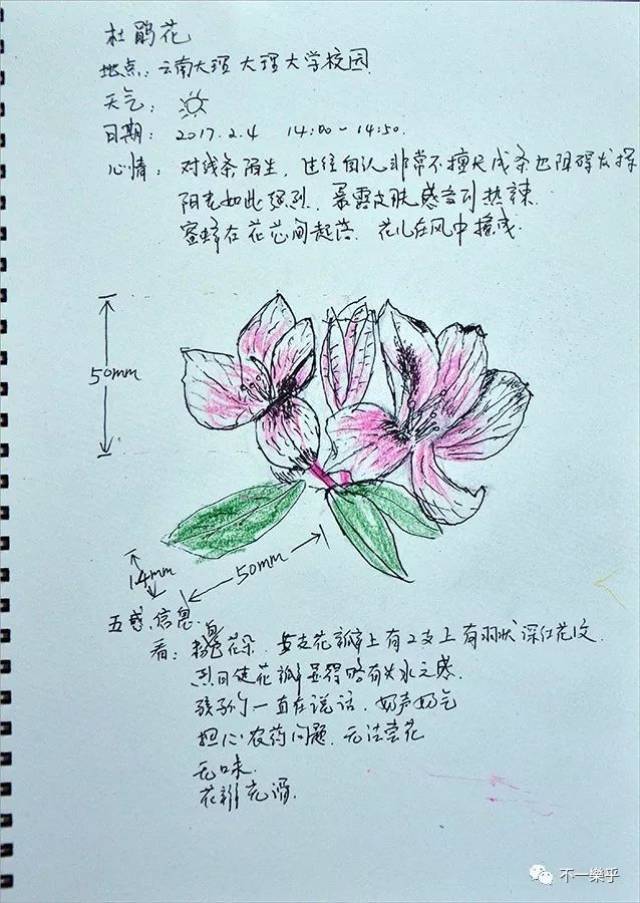 杜鹃花
地点：云南大理 大理大学校园
天气：
日期：2017.2.4 14:00~14:50.
心情：对线条陌生，过往自认非常不擅长线条也阻碍发挥
阳光如此强烈，暴露皮肤感言到热辣.
蜜蜂在花芯间起落. 花儿在风中摇曳.
50mm
14mm
50mm
五感信息
看：粉色花朵. 每支花瓣上有2支上有羽状深红花纹.
烈日使花瓣显得略有失水之感.
孩子们一直在说话. 好声好气
担心农药问题. 无法尝花
无味.
花瓣光滑.
不一樂乎